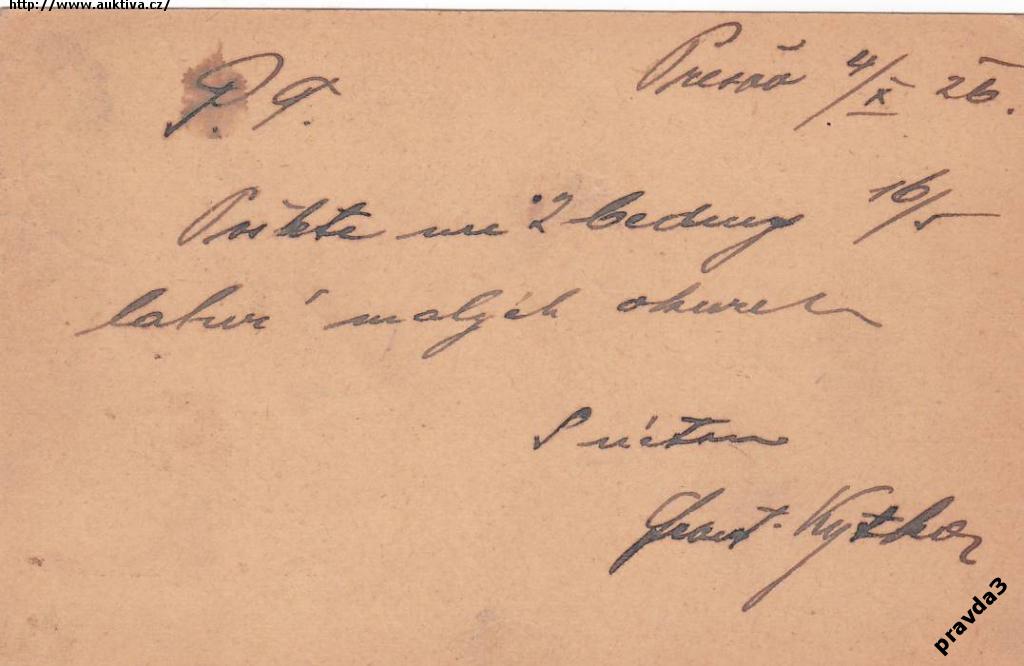 http://www.auktiva.cz/
P. T. Prešov 4/X 26.
Pošlete mi 2 bedny 16/5
malých okurek
S úctou
Frant. Kytka
pravda3